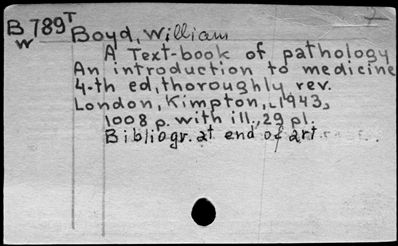 B789T Boyd, William
W
A Text-book of pathology
An introduction to medicine
4-th ed, thoroughly rev.
London, Kimpton, 1943,
1008 p. with ill., 29 pl.
Bibliogr. at end of art.